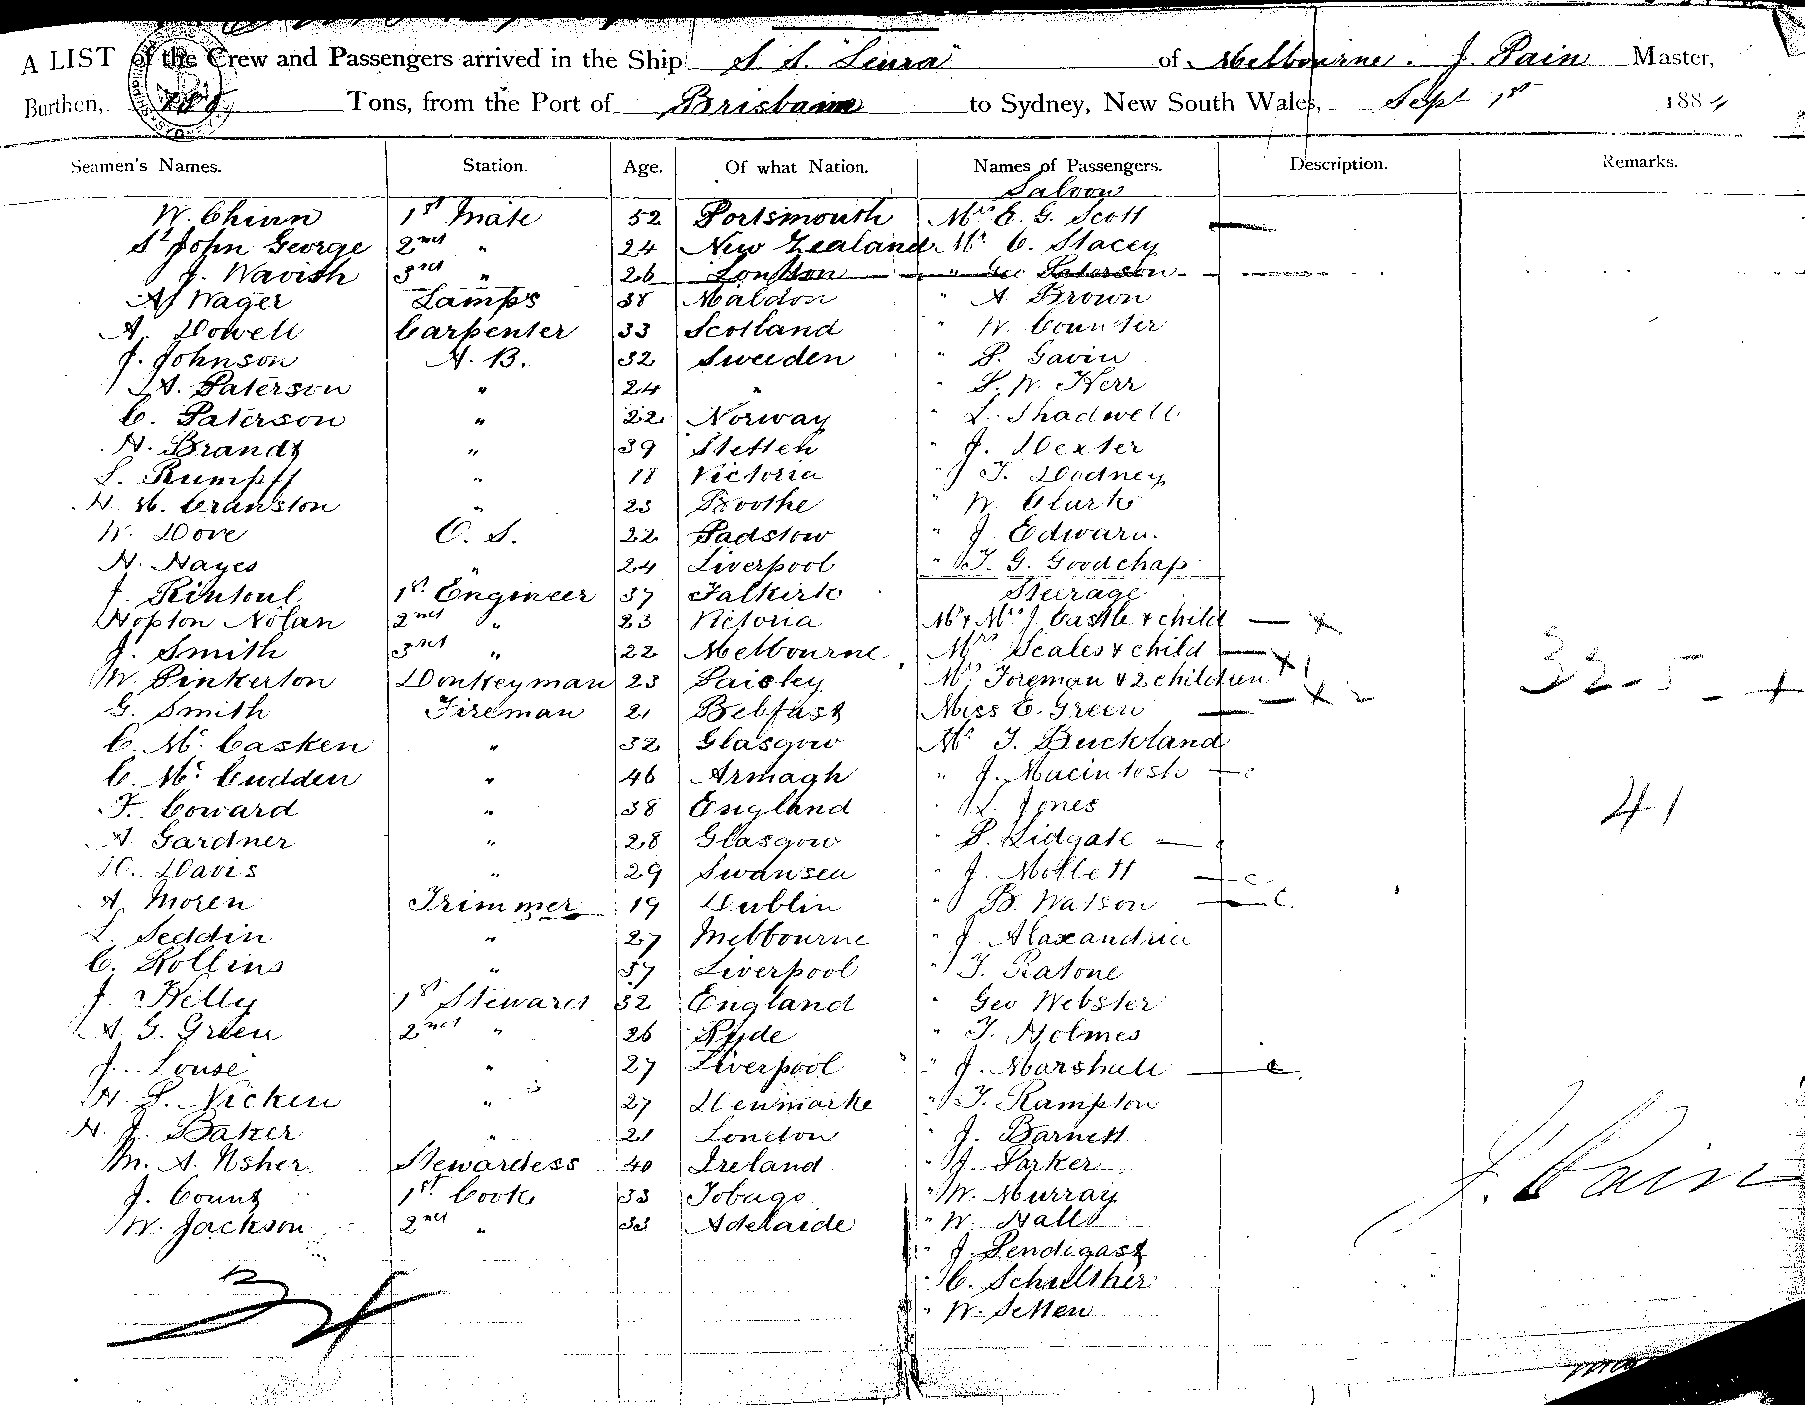 A LIST of the Crew and Passengers arrived in the Ship S. S. "Leura" of Melbourne. J. Pain Master,
Burthen, Tons, from the Port of Brisbane to Sydney, New South Wales, Sept 1st 1884
Seamen's Names. Station. Age. Of what Nation. Names of Passengers. Description. Remarks.
Saloon
W. Chinn 1st Mate 52 Portsmouth Mrs E. G. Scott
St John George 2nd " 24 New Zealand Mr C. Stacey
J. Wavish 3rd " 26 London " Geo Paterson
A. Wager Lamps 38 Maldon " A. Brown
A. Dowell Carpenter 33 Scotland " W. Counter
J. Johnson A. B. 32 Sweeden " P. Gavin
A. Paterson " 24 " " S. W. Kerr
C. Paterson " 22 Norway " L. Shadwell
H. Brandt " 39 Stetten " J. Dexter
L. Rumpff " 18 Victoria " T. Dodney
H. M. Cranston " 23 Boothe " W. Clark
W. Dove O. S. 22 Padstow " J. Edward.
H. Hayes " 24 Liverpool " T. G. Goodchap
J. Rintoul 1st Engineer 37 Falkirk Steerage
Hopton Nolan 2nd " 23 Victoria Mr & Mrs J. Castle & child — x
J. Smith 3rd " 22 Melbourne Mrs Scales & child — x 1
W. Pinkerton Donkeyman 23 Paisley Mrs Foreman & 2 children — x 2 32 - 5 - +
G. Smith Fireman 21 Belfast Miss E. Green —
C. Mc Casken " 32 Glasgow Mr T. Buckland
C. Mc Cudden " 46 Armagh " J. Macintosh — c
F. Coward " 38 England " L. Jones 41
A. Gardner " 28 Glasgow " P. Lidgate — c
D. Davis " 29 Swansea " J. Mollett — c
A. Moren Trimmer 19 Dublin " B. Watson — c.
L. Seddin " 27 Melbourne " J. Alaxandria
C. Rollins " 37 Liverpool " T. Ratone
J. Kelly 1st Steward 32 England " Geo Webster
A. G. Green 2nd " 26 Ryde " T. Holmes
J. Louse " 27 Liverpool " J. Marshall — c.
H. P. Nicken " 27 Denmarke " T. Rampton
H. J. Baker " 21 London " J. Barnett
M. A. Usher Stewardess 40 Ireland " J. Parker
J. Count 1st Cook 33 Tobago " W. Murray
W. Jackson 2nd " 33 Adelaide " W. Halls
" J. Pendigast
" C. Schulther
" W. Setten
J. Pain